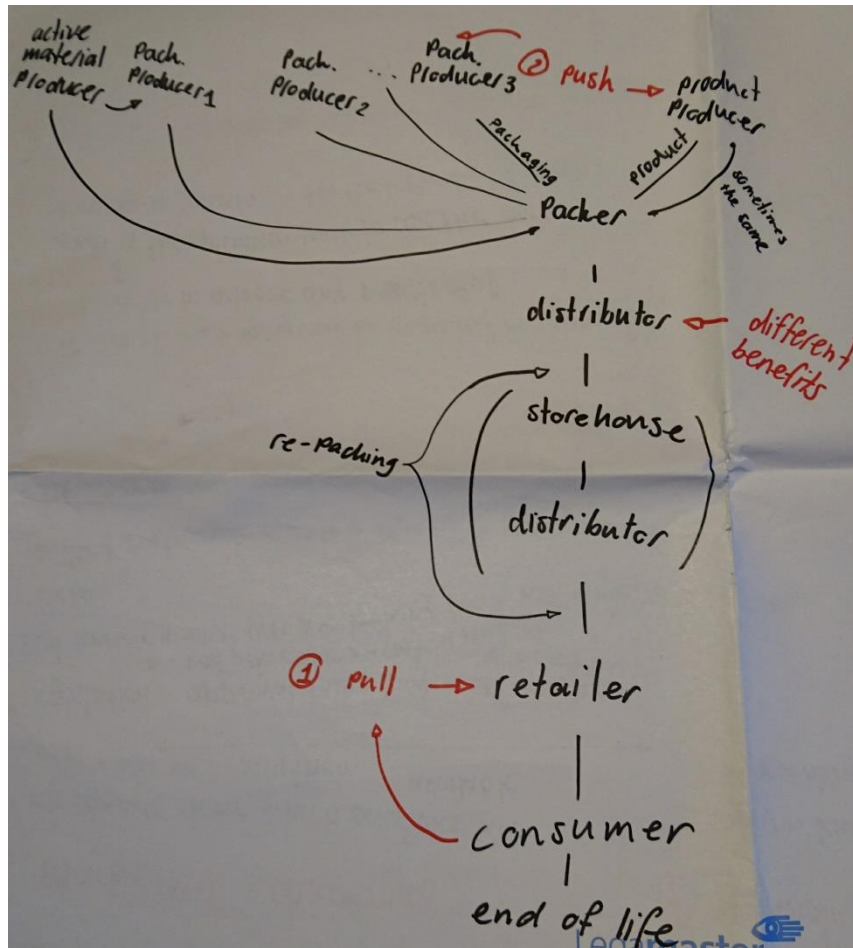 active
material
Producer
Pach.
Producer1
Pach.
Producer2
...
Pach.
Producer3
② push
product
Producer
packaging
product
sometimes
the same
Packer
distributor
different
benefits
storehouse
re-packing
distributor
① pull
retailer
consumer
end of life
Legamaster